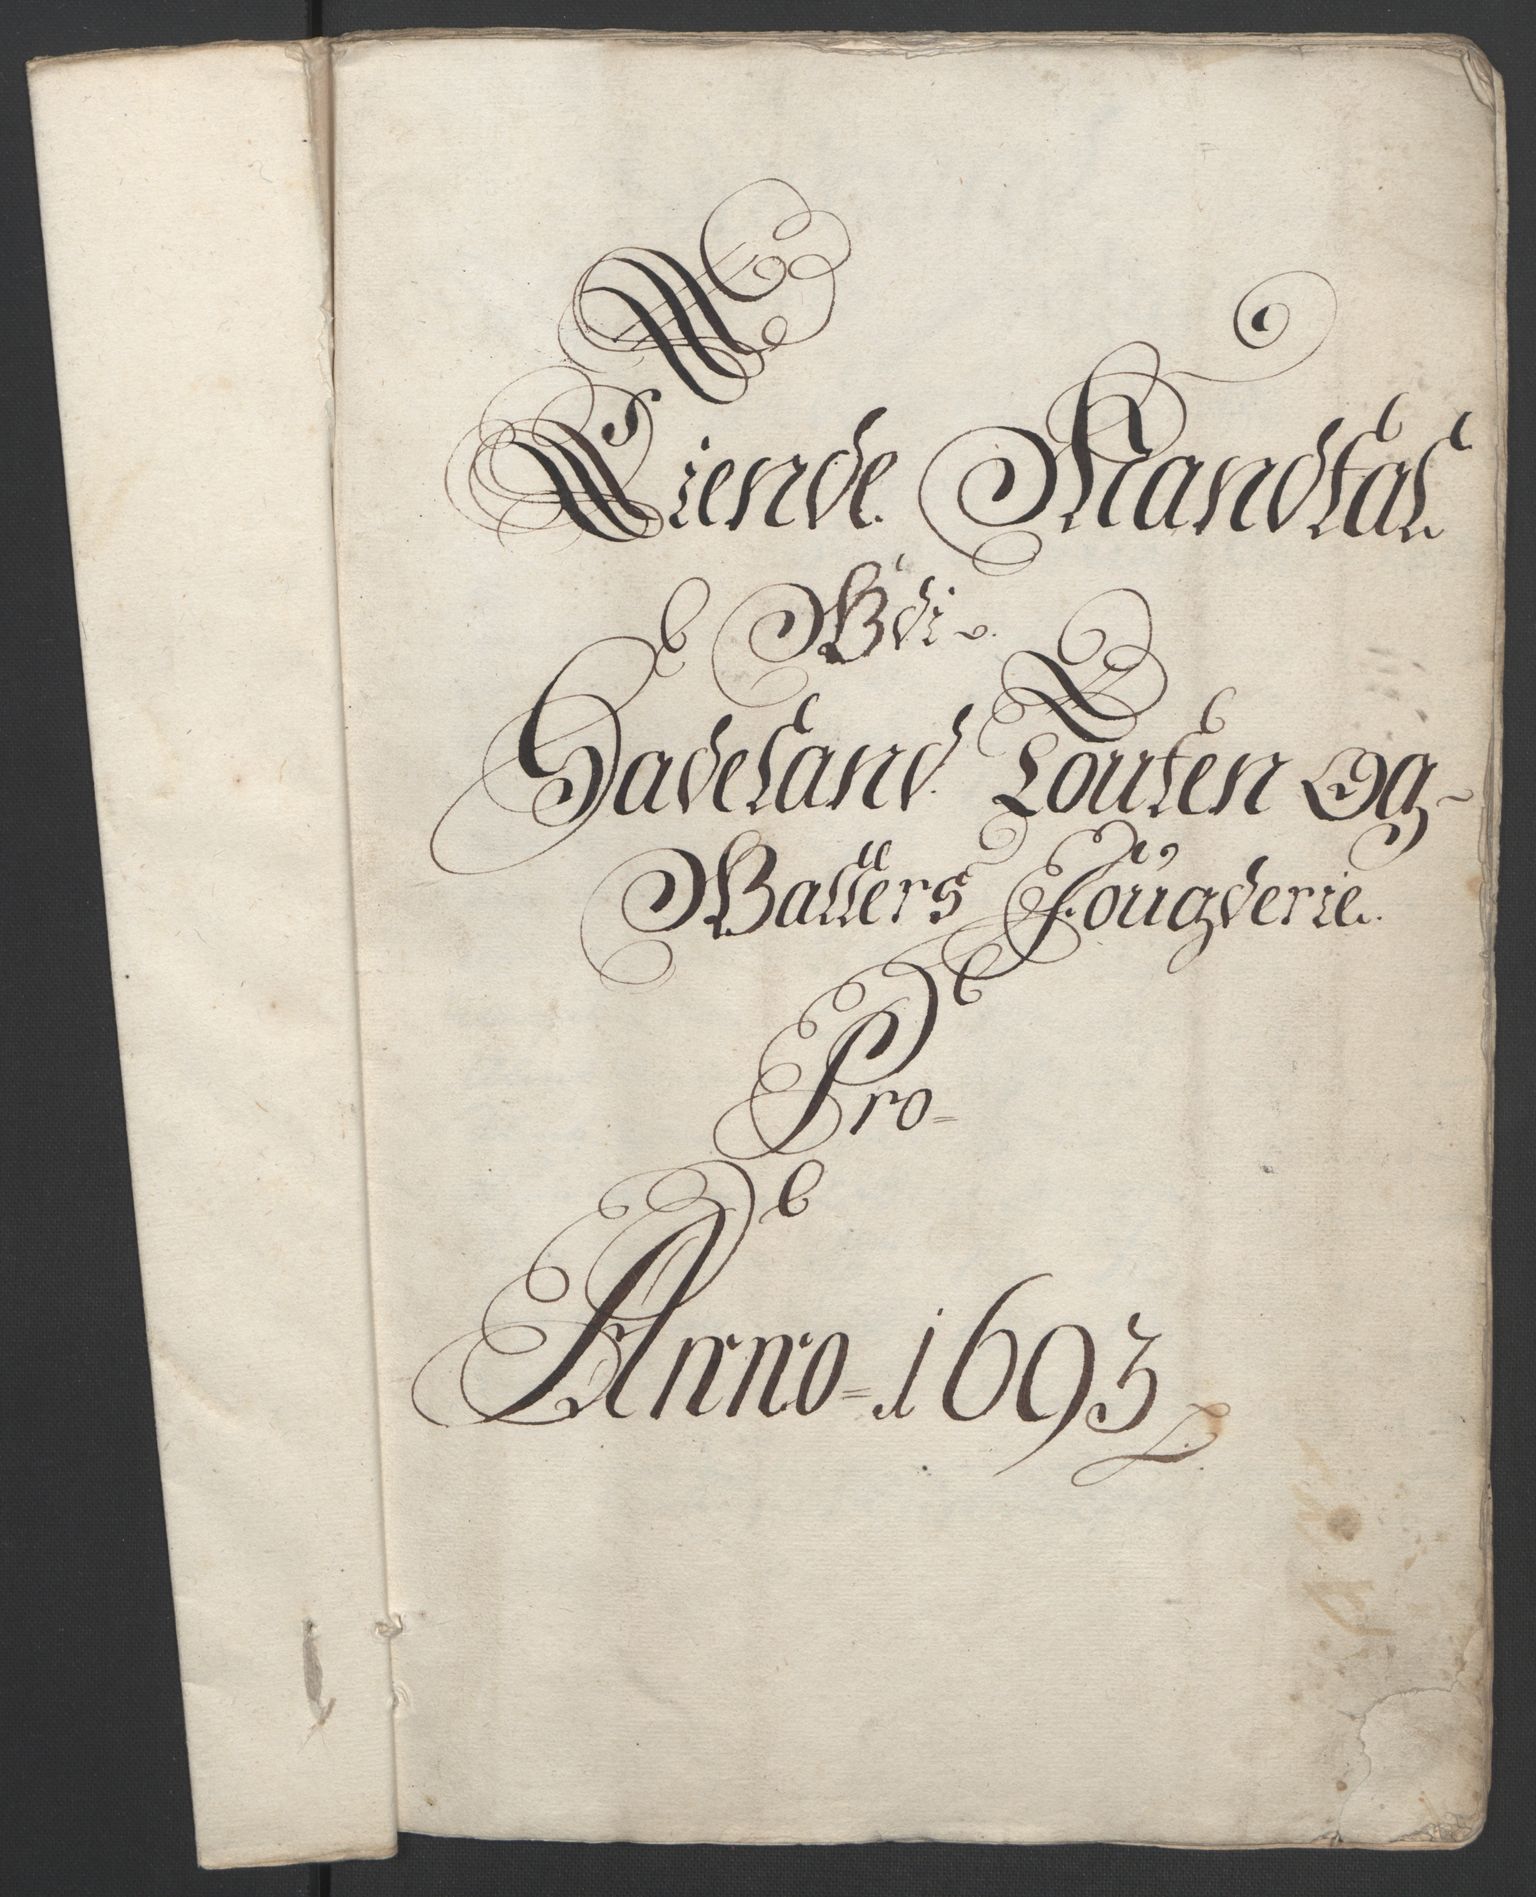 Tiende Mandtal
Udi
Hadeland Touten Og
Valders Fougderie.
Pro
Anno 1693